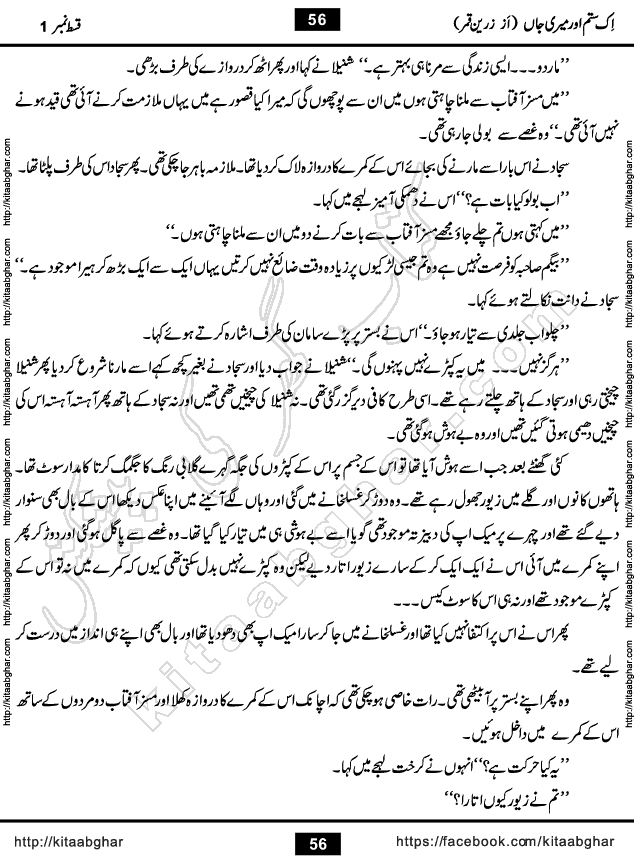 قسط نمبر 1
56
اِک ستم اور میری جاں (از زرین قمر)
’’مار دو۔۔۔ ایسی زندگی سے مرنا ہی بہتر ہے۔‘‘ شنیلا نے کہا اور پھر اٹھ کر دروازے کی طرف بڑھی۔
’’میں مسز آفتاب سے ملنا چاہتی ہوں میں ان سے پوچھوں گی کہ میرا کیا قصور ہے میں یہاں ملازمت کرنے آئی تھی قید ہونے
نہیں آئی تھی۔‘‘ وہ غصے سے بولی جا رہی تھی۔
سجاد نے اس بار اسے مارنے کی بجائے اس کے کمرے کا دروازہ لاک کر دیا تھا۔ ملازمہ باہر جا چکی تھی۔ پھر سجاد اس کی طرف پلٹا تھا۔
’’اب بولو کیا بات ہے؟‘‘ اس نے دھمکی آمیز لہجے میں کہا۔
’’میں کہتی ہوں تم چلے جاؤ مجھے مسز آفتاب سے بات کرنے دو میں ان سے ملنا چاہتی ہوں۔‘‘
’’بیگم صاحبہ کو فرصت نہیں ہے وہ تم جیسی لڑکیوں پر زیادہ وقت ضائع نہیں کرتیں یہاں ایک سے ایک بڑھ کر ہیرا موجود ہے۔‘‘
سجاد نے دانت نکالتے ہوئے کہا۔
’’چلو اب جلدی سے تیار ہو جاؤ۔‘‘ اس نے بستر پر پڑے سامان کی طرف اشارہ کرتے ہوئے کہا۔
’’ہرگز نہیں۔۔۔ میں یہ کپڑے نہیں پہنوں گی۔‘‘ شنیلا نے جواب دیا اور سجاد نے بغیر کچھ کہے اسے مارنا شروع کر دیا پھر شنیلا
چیختی رہی اور سجاد کے ہاتھ چلتے رہے تھے۔ اسی طرح کافی دیر گزر گئی تھی۔ نہ شنیلا کی چیخیں تھمی تھیں اور نہ سجاد کے ہاتھ پھر آہستہ آہستہ اس کی
چیخیں دھیمی ہوتی گئیں تھیں اور وہ بے ہوش ہو گئی تھی۔
کئی گھنٹے بعد جب اسے ہوش آیا تھا تو اس کے جسم پر اس کے کپڑوں کی جگہ گہرے گلابی رنگ کا جگمگ کرتا کامدار سوٹ تھا۔
ہاتھوں کانوں اور گلے میں زیور جھول رہے تھے۔ وہ دوڑ کر غسلخانے میں گئی اور وہاں لگے آئینے میں اپنا عکس دیکھا اس کے بال بھی سنوار
دیے گئے تھے اور چہرے پر میک اپ کی دبیز تہ موجود تھی گویا اسے بے ہوشی ہی میں تیار کیا گیا تھا۔ وہ غصے سے پاگل ہو گئی اور دوڑ کر پھر
اپنے کمرے میں آئی اس نے ایک ایک کر کے سارے زیور اتار دیے لیکن وہ کپڑے نہیں بدل سکتی تھی کیوں کہ کمرے میں نہ تو اس کے
کپڑے موجود تھے اور نہ ہی اس کا سوٹ کیس۔۔۔
پھر اس نے اس پر اکتفا نہیں کیا تھا اور غسلخانے میں جا کر سارا میک اپ بھی دھو دیا تھا اور بال بھی اپنے ہی انداز میں درست کر
لیے تھے۔
وہ پھر اپنے بستر پر آ بیٹھی تھی۔ رات خاصی ہو چکی تھی کہ اچانک اس کے کمرے کا دروازہ کھلا اور مسز آفتاب دو مردوں کے ساتھ
اس کے کمرے میں داخل ہوئیں۔
’’یہ کیا حرکت ہے؟‘‘ انہوں نے کرخت لہجے میں کہا۔
’’تم نے زیور کیوں اتارا؟‘‘
http://kitaabghar.com
http://kitaabghar.com
http://kitaabghar.com
http://kitaabghar.com
http://kitaabghar.com
http://kitaabghar.com
http://kitaabghar.com
http://kitaabghar.com
http://kitaabghar.com
http://kitaabghar.com
http://kitaabghar.com
http://kitaabghar.com
کتاب گھر کی پیشکش
kitaabghar.com
http://kitaabghar
56
https://facebook.com/kitaabghar